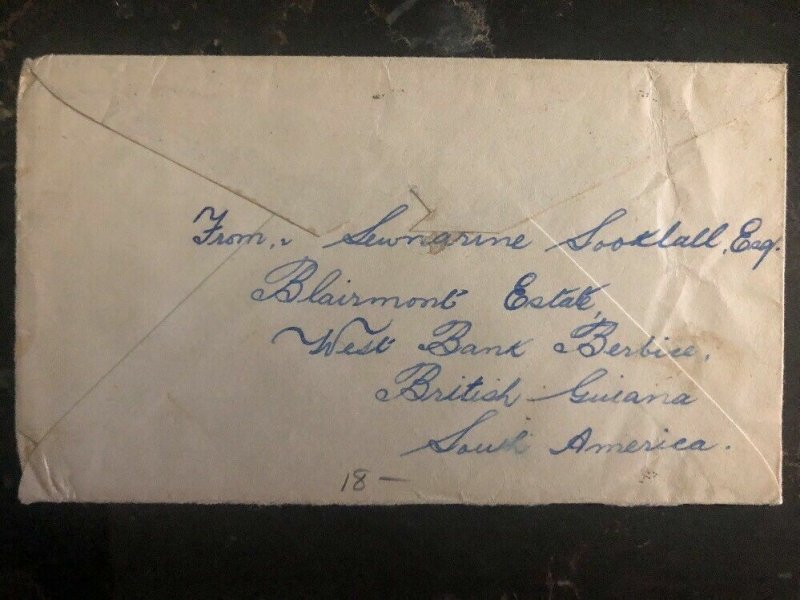 From, Sewnarine Sooklall, Esq.
Blairmont Estate,
West Bank Berbice,
British Guiana
South America.
18 —